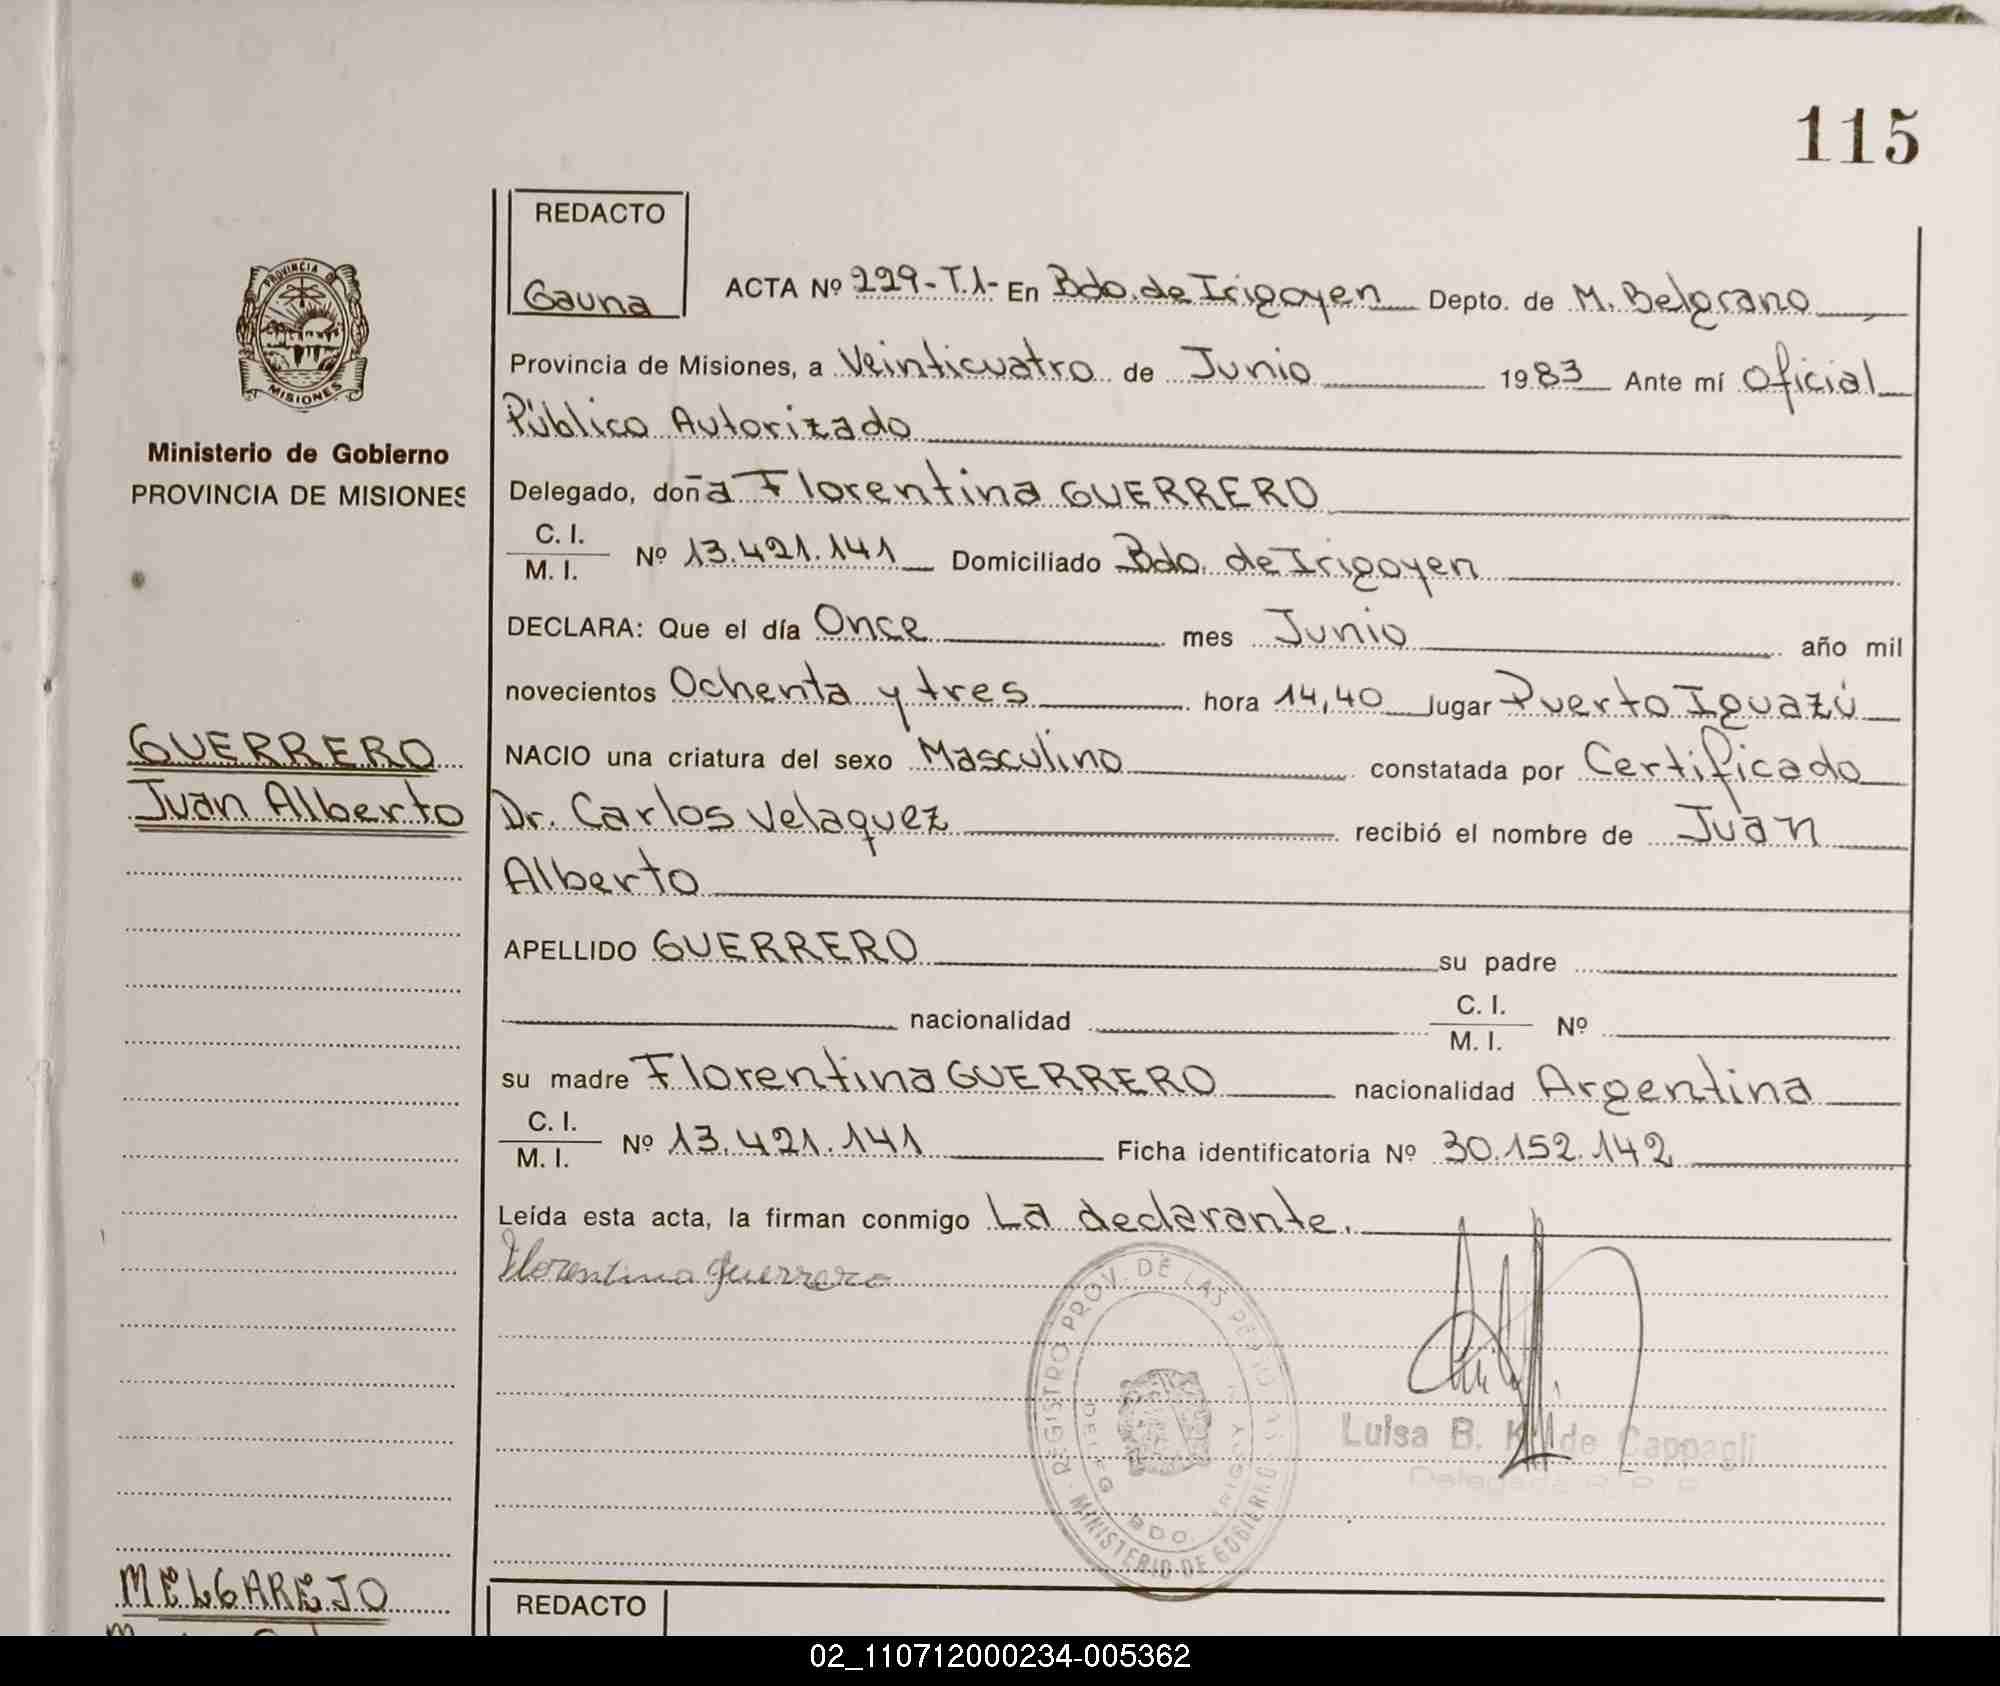 115
REDACTO
Gauna
PROVINCIA DE
MISIONES
ACTA Nº 229-T.1- En Bdo. de Irigoyen Depto. de M. Belgrano
Provincia de Misiones, a Veinticuatro de Junio 1983 Ante mí Oficial
Público Autorizado
Ministerio de Gobierno
PROVINCIA DE MISIONES
Delegado, doña Florentina GUERRERO
C. I.
M. I. Nº 13.421.141 Domiciliado Bdo. de Irigoyen
DECLARA: Que el día Once mes Junio año mil
novecientos Ochenta y tres hora 14,40 lugar Puerto Iguazú
GUERRERO
Juan Alberto
NACIO una criatura del sexo Masculino constatada por Certificado
Dr. Carlos Velaquez recibió el nombre de Juan
Alberto
APELLIDO GUERRERO su padre
nacionalidad C. I.
M. I. Nº
su madre Florentina GUERRERO nacionalidad Argentina
C. I.
M. I. Nº 13.421.141 Ficha identificatoria Nº 30.152.142
Leída esta acta, la firman conmigo La declarante.
Florentina Guerrero
REGISTRO PROV. DE LAS PERSONAS
MINISTERIO DE GOBIERNO
DELEG. BDO. IRIGOY
Luisa B. de Cappagli
Delegada R P P
MELGAREJO
REDACTO
02_110712000234-005362